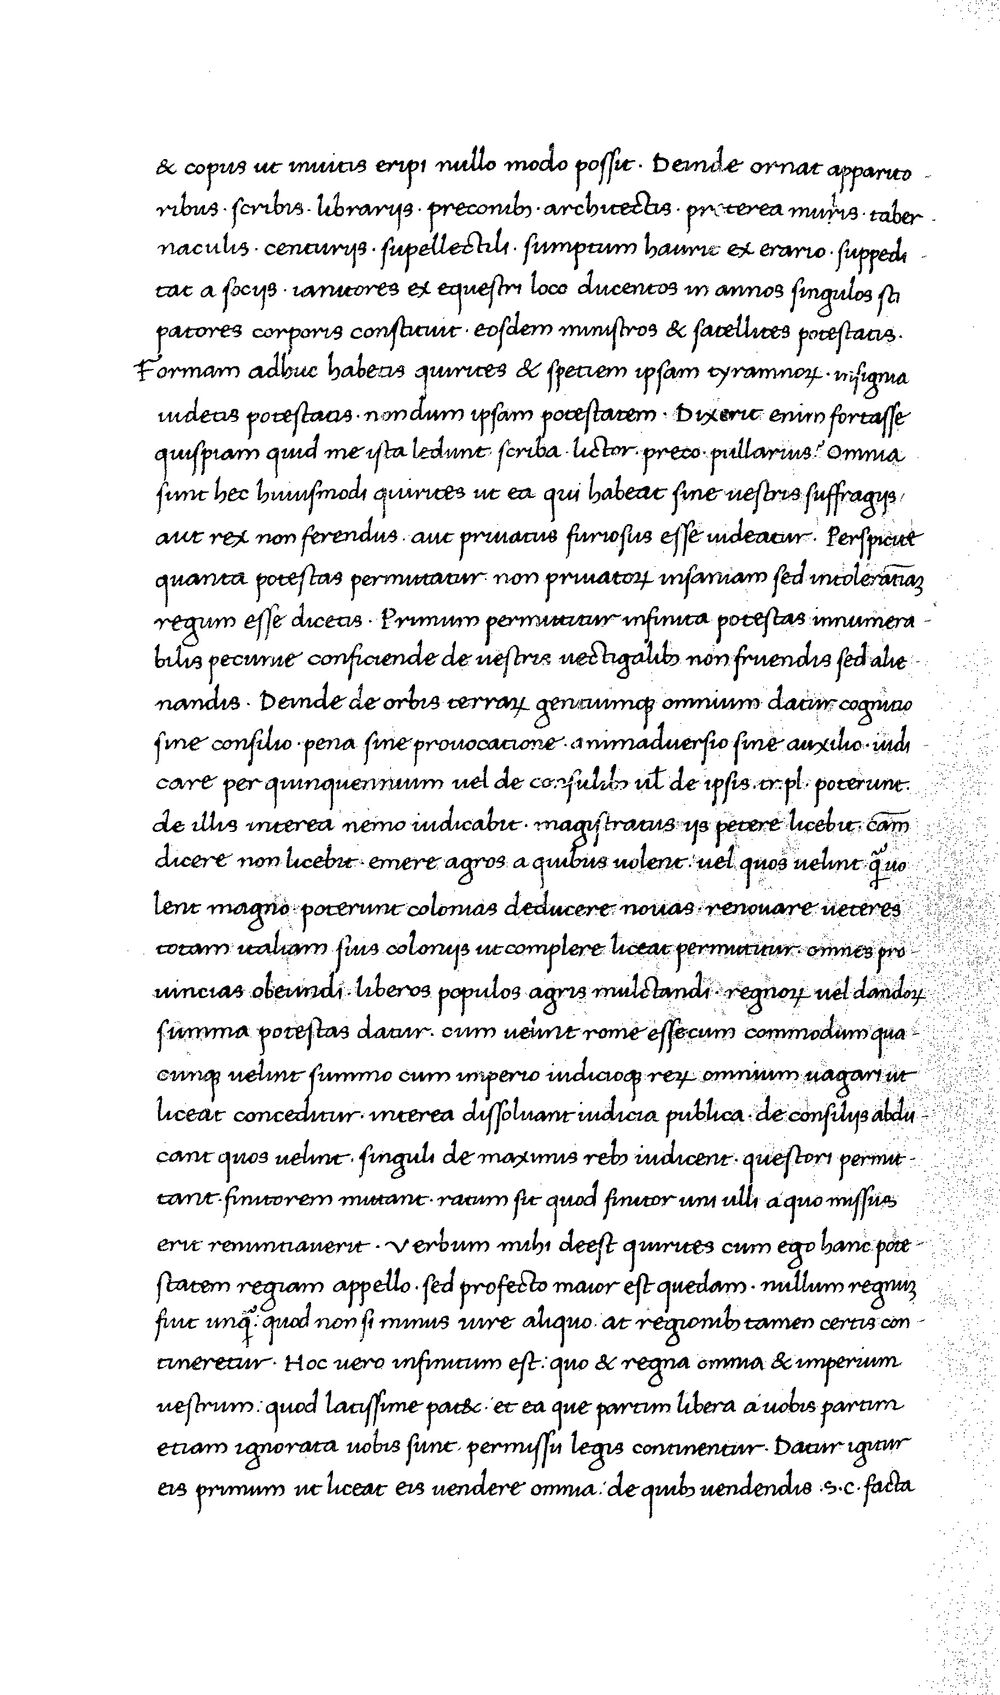 & copus ut inuitis eripi nullo modo possit · Deinde ornat apparito-
ribus · scribis · librarijs · preconib; · architectis · preterea muris · taber-
naculis · centurijs · supellectili · sumptum haurit ex erario · suppedi-
tat a socijs · ianitores ex equestri loco ducentos in annos singulos sti
patores corporis constituit · eosdem ministros & satellites potestatis ·
Formam adhuc habetis quirites & spetiem ipsam tyramnoꝝ · insignia
uidetis potestatis · nondum ipsam potestatem · Dixerit enim fortasse
quispiam quid me ista ledunt · scriba · lictor · preco · pullarius? Omnia
sunt hec huiusmodi quirites ut ea qui habeat sine uestris suffragijs /
aut rex non ferendus · aut priuatus furiosus esse uideatur · Perspicite
quanta potestas permittatur · non priuatoꝝ insaniam sed intolerātiaꝫ
regum esse dicetis · Primum permittitur infinita potestas innumera-
bilis pecunie conficiende de uestris uectigalib; non fruendis sed alie-
nandis · Deinde de orbis terraꝝ gentiumqꝫ omnium datur cognitio
sine consilio · pena sine prouocatione · animadversio sine auxilio · iudi-
care per quinquennium uel de consulib; ul̄ de ipsis · tr · pl · poterunt ·
de illis interea nemo iudicabit · magistratus ijs petere licebit · cām
dicere non licebit · emere agros a quibus uolent · uel quos uelint q̄ uo
lent magno · poterunt colonias deducere nouas · renouare ueteres
totam italiam suis colonijs ut complere liceat permittitur · omnes pro-
uincias obeundi · liberos populos agris mulctandi · regnoꝝ uel dandoꝝ
summa potestas datur · cum uelint rome esse cum commodum qua-
cunqꝫ uelint summo cum imperio iudicioqꝫ reꝝ omnium uagari ut
liceat conceditur · interea dissoluant iudicia publica · de consilijs abdu-
cant quos uelint · singuli de maximis reb; iudicent · questori permit-
tant · finitorem mittant · ratum sit quod finitor uni ulli a quo missus
erit renuntiauerit · Verbum mihi deest quirites cum ego hanc pote-
statem regiam appello · sed profecto maior est quedam · nullum regnuꝫ
fuit unq̄ : quod non si minus iure aliquo · at regionib; tamen certis con-
tineretur · Hoc uero infinitum est : quo & regna omnia & imperium
uestrum : quod latissime pat& · et ea que partim libera a uobis partim
etiam ignorata uobis sunt · permissu legis continentur · Datur igitur
eis primum ut liceat eis uendere omnia : de quib; uendendis · s · c · facta